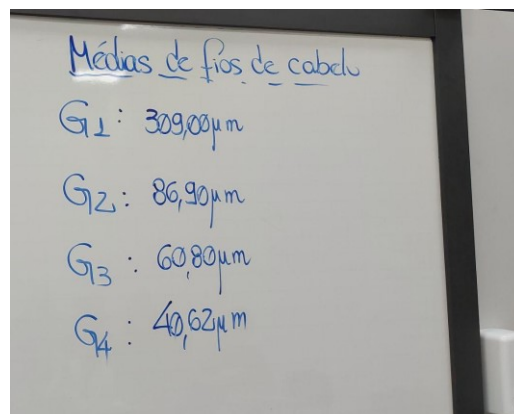 Médias de fios de cabelo
G1: 309,00μm
G2: 86,90μm
G3: 60,80μm
G4: 40,62μm